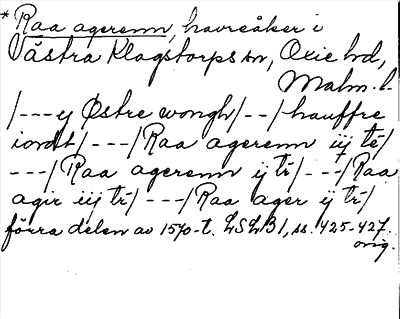 * Raa agerenn, havreåker i
Västra Klagstorps sn, Oxie hd,
Malm. l.
/---ij Østre wongh/--/hauffre
iordt/---/Raa agerenn iij tr/
---/Raa agerenn ij tr/---/Raa
agir iij tr/---/Raa ager ij tr/
förra delen av 1570-t. LSLB1, ss. 425-427.
orig.